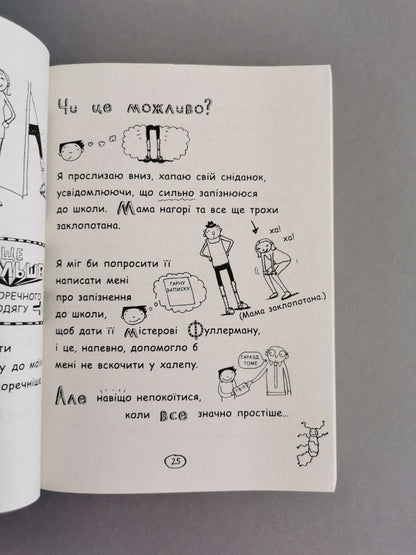 ОРЕЧНОГО
ОДЯГУ
ти
у до мо
оречніше
Чи це можливо?
Я прослизаю вниз, хапаю свій сніданок,
усвідомлюючи, що сильно запізнююся
до школи. Мама нагорі та все ще трохи
заклопотана.
ха!
ха!
Я міг би попросити її
написати мені
про запізнення
до школи,
ГАРНУ
ЗАПИСКУ
(Мама заклопотана.)
щоб дати її містерові Фуллерману,
і це, напевно, допомогло б
мені не вскочити у халепу.
ГАРАЗД,
ТОМЕ
Але навіщо непокоїтися,
коли все значно простіше...
25